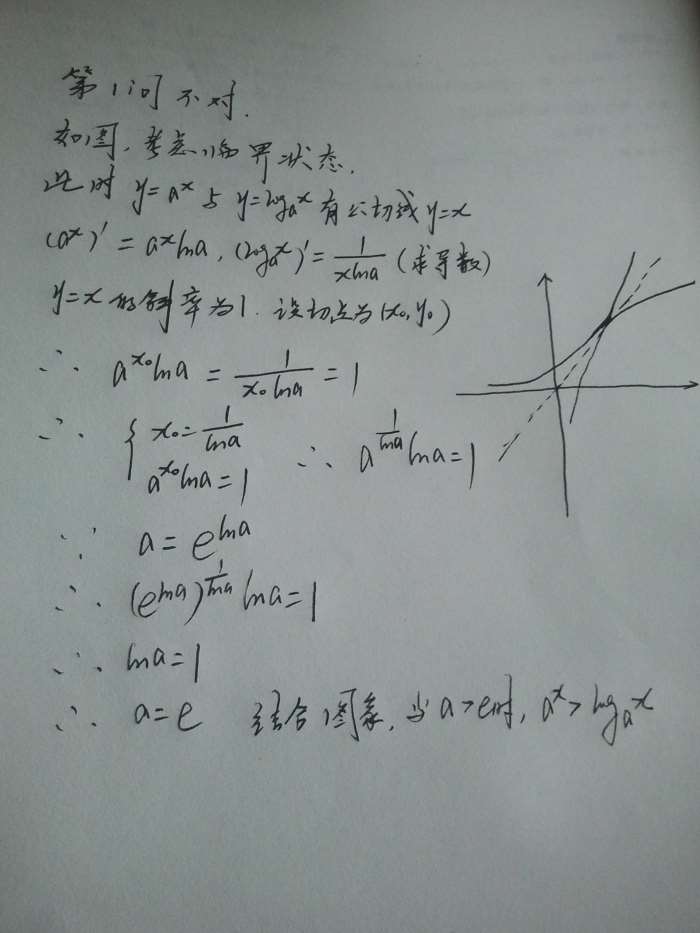 第1问不对.
如图,考虑临界状态.
此时 y=a^x 与 y=log_a^x 有公切线 y=x
(a^x)' = a^x lna, (log_a^x)' = 1/(xlna) (求导数)
y=x 的斜率为1. 设切点为(x₀,y₀)
∴ a^(x₀)lna = 1/(x₀lna) = 1
∴ { x₀=1/lna
a^(x₀)lna=1 ∴ a^(1/lna)lna=1
∵ a = e^(lna)
∴ (e^(lna))^(1/lna) lna=1
∴ lna=1
∴ a=e 结合图象,当a>e时, a^x>log_a^x